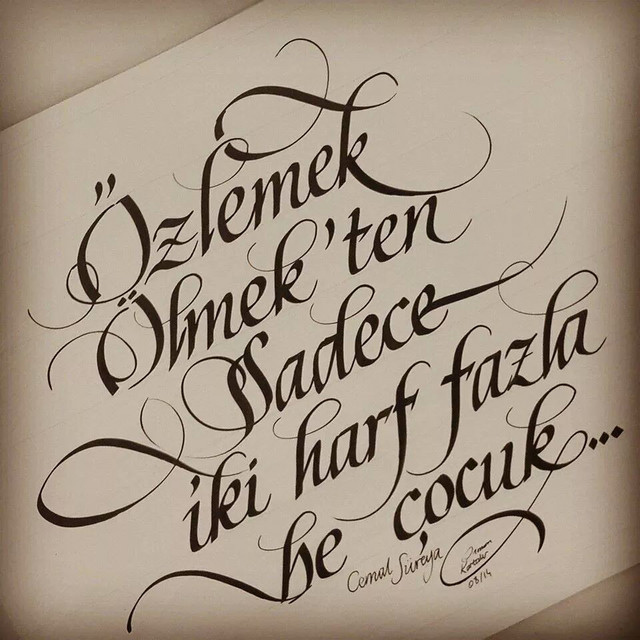 Özlemek
Ölmek'ten
Sadece
iki harf fazla
be çocuk...
Cemal Süreya
03/14